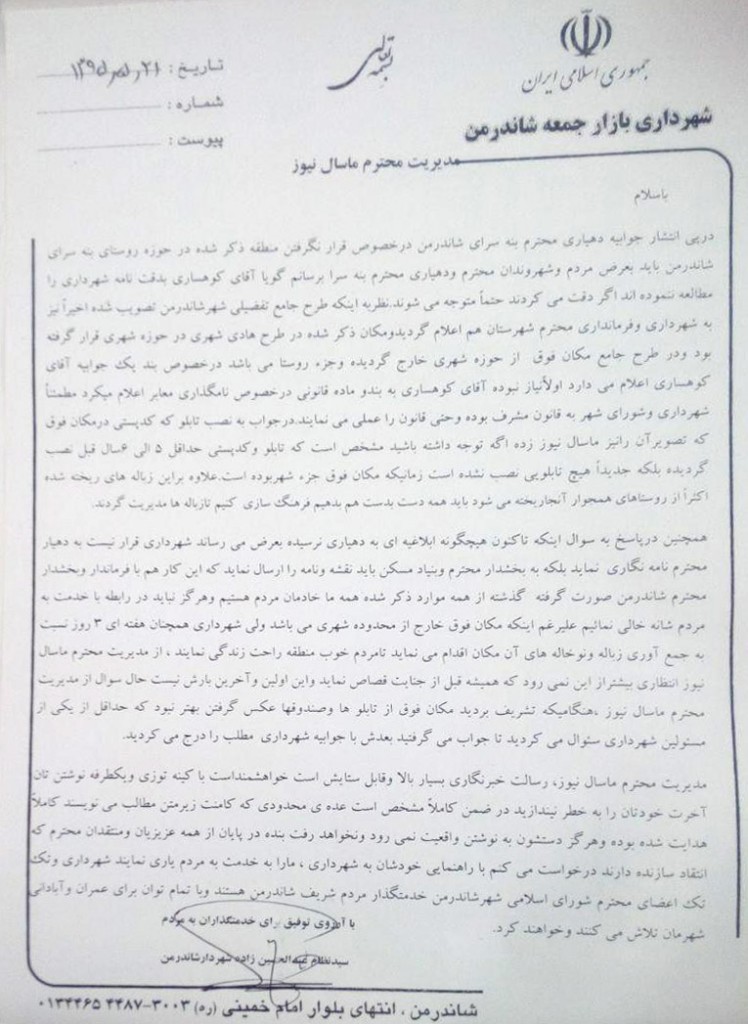 جمهوری اسلامی ایران
شهرداری بازار جمعه شاندرمن
بسمه تعالی
تاریخ :
شماره :
پیوست :
مدیریت محترم ماسال نیوز
باسلام
درپی انتشار جوابیه دهیاری محترم بنه سرای شاندرمن درخصوص قرار نگرفتن منطقه ذکر شده در حوزه روستای بنه سرای
شاندرمن باید بعرض مردم وشهروندان محترم ودهیاری محترم بنه سرا برسانم گویا آقای کوهساری بدقت نامه شهرداری را
مطالعه ننموده اند اگر دقت می کردند حتماً متوجه می شوند.نظربه اینکه طرح جامع تفضیلی شهرشاندرمن تصویب شده اخیراً نیز
به شهرداری وفرمانداری محترم شهرستان هم اعلام گردیدومکان ذکر شده در طرح هادی شهری در حوزه شهری قرار گرفته
بود ودر طرح جامع مکان فوق از حوزه شهری خارج گردیده وجزء روستا می باشد درخصوص بند یک جوابیه آقای
کوهساری اعلام می دارد اولاًنیاز نبوده آقای کوهساری به بندو ماده قانونی درخصوص نامگذاری معابر اعلام میکرد مطمئناً
شهرداری وشورای شهر به قانون مشرف بوده وحتی قانون را عملی می نمایند.درجواب به نصب تابلو که کدپستی درمکان فوق
که تصویرآن رانیز ماسال نیوز زده اگه توجه داشته باشید مشخص است که تابلو وکدپستی حداقل ۵ الی ۶سال قبل نصب
گردیده بلکه جدیداً هیچ تابلویی نصب نشده است زمانیکه مکان فوق جزء شهربوده است.علاوه براین زباله های ریخته شده
اکثراً از روستاهای همجوار آنجاریخته می شود باید همه دست بدست هم بدهیم فرهنگ سازی کنیم تازباله ها مدیریت گردند.
همچنین درپاسخ به سوال اینکه تاکنون هیچگونه ابلاغیه ای به دهیاری نرسیده بعرض می رساند شهرداری قرار نیست به دهیار
محترم نامه نگاری نماید بلکه به بخشدار محترم وبنیاد مسکن باید نقشه ونامه را ارسال نماید که این کار هم با فرماندار وبخشدار
محترم شاندرمن صورت گرفته گذشته از همه موارد ذکر شده همه ما خادمان مردم هستیم وهرگز نباید در رابطه با خدمت به
مردم شانه خالی نمائیم علیرغم اینکه مکان فوق خارج از محدوده شهری می باشد ولی شهرداری همچنان هفته ای ۳ روز نسبت
به جمع آوری زباله ونوخاله های آن مکان اقدام می نماید تامردم خوب منطقه راحت زندگی نمایند ، از مدیریت محترم ماسال
نیوز انتظاری بیشتراز این نمی رود که همیشه قبل از جنایت قصاص نماید واین اولین وآخرین بارش نیست حال سوال از مدیریت
محترم ماسال نیوز ،هنگامیکه تشریف بردید مکان فوق از تابلو ها وصندوقها عکس گرفتن بهتر نبود که حداقل از یکی از
مسئولین شهرداری سئوال می کردید تا جواب می گرفتید بعدش با جوابیه شهرداری مطلب را درج می کردید.
مدیریت محترم ماسال نیوز، رسالت خبرنگاری بسیار بالا وقابل ستایش است خواهشمنداست با کینه توزی ویکطرفه نوشتن تان
آخرت خودتان را به خطر نیندازید در ضمن کاملاً مشخص است عده ی محدودی که کامنت زیرمتن مطالب می نویسند کاملاً
هدایت شده بوده وهرگز دستشون به نوشتن واقعیت نمی رود ونخواهد رفت بنده در پایان از همه عزیزیان ومنتقدان محترم که
انتقاد سازنده دارند درخواست می کنم با راهنمایی خودشان به شهرداری ، مارا به خدمت به مردم یاری نمایند شهرداری وتک
تک اعضای محترم شورای اسلامی شهرشاندرمن خدمتگذار مردم شریف شاندرمن هستند وبا تمام توان برای عمران وآبادانی
شهرمان تلاش می کنند وخواهند کرد.
با آرزوی توفیق برای خدمتگذاران به مردم
سیدنظام عبدالحسین زاده شهردارشاندرمن
شاندرمن ، انتهای بلوار امام خمینی (ره) ۳۰۰۳-۴۴۸۷ ۰۱۳۴۴۶۵